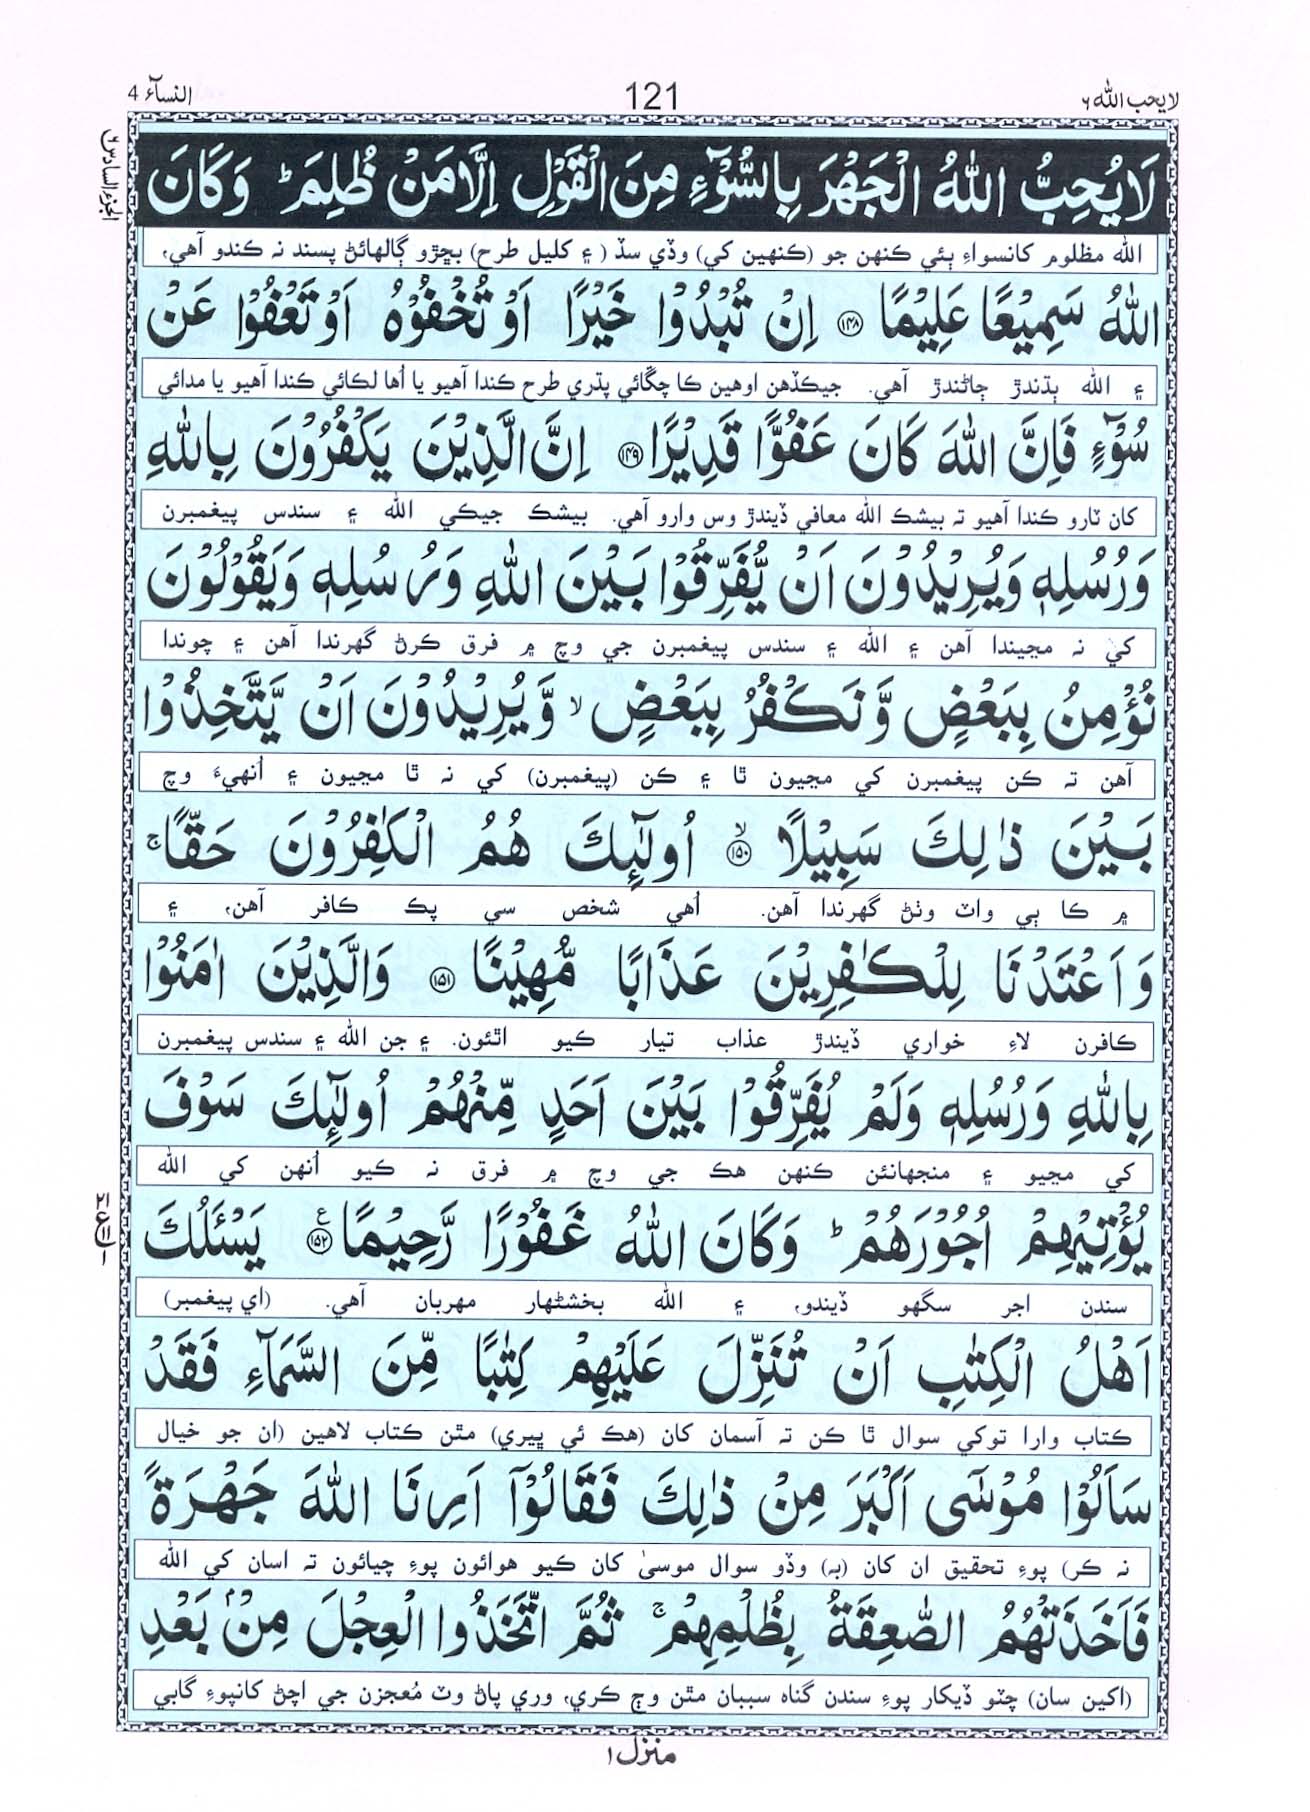 لا يحب الله ٦
121
النسآء 4
الجزء السادس ٦
لَا يُحِبُّ اللّٰهُ الْجَهْرَ بِالسُّوْٓءِ مِنَ الْقَوْلِ اِلَّا مَنْ ظُلِمَ ؕ وَكَانَ
الله مظلوم کانسواءِ ٻئي ڪنهن جو (ڪنهين کي) وڏي سڏ ( ۽ کليل طرح) بڇڙو ڳالهائڻ پسند نہ ڪندو آهي،
اللّٰهُ سَمِيْعًا عَلِيْمًا ﴿۱۴۸﴾ اِنْ تُبْدُوْا خَيْرًا اَوْ تُخْفُوْهُ اَوْ تَعْفُوْا عَنْ
۽ الله ٻڌندڙ ڄاڻندڙ آهي. جيڪڏهن اوهين ڪا چڱائي پڌري طرح ڪندا آهيو يا اُها لڪائي ڪندا آهيو يا مدائي
سُوْٓءٍ فَاِنَّ اللّٰهَ كَانَ عَفُوًّا قَدِيْرًا ﴿۱۴۹﴾ اِنَّ الَّذِيْنَ يَكْفُرُوْنَ بِاللّٰهِ
کان ٽارو ڪندا آهيو تہ بيشڪ الله معافي ڏيندڙ وس وارو آهي. بيشڪ جيڪي الله ۽ سندس پيغمبرن
وَرُسُلِهٖ وَيُرِيْدُوْنَ اَنْ يُّفَرِّقُوْا بَيْنَ اللّٰهِ وَرُسُلِهٖ وَيَقُوْلُوْنَ
کي نہ مڃيندا آهن ۽ الله ۽ سندس پيغمبرن جي وچ ۾ فرق ڪرڻ گهرندا آهن ۽ چوندا
نُؤْمِنُ بِبَعْضٍ وَّنَكْفُرُ بِبَعْضٍ ۙ وَّيُرِيْدُوْنَ اَنْ يَّتَّخِذُوْا
آهن تہ ڪن پيغمبرن کي مڃيون ٿا ۽ ڪن (پيغمبرن) کي نہ ٿا مڃيون ۽ اُنهيءَ وچ
بَيْنَ ذٰلِكَ سَبِيْلًا ﴿۱۵۰﴾ ۙ اُولٰٓئِكَ هُمُ الْكٰفِرُوْنَ حَقًّا ۚ
۾ ڪا ٻي واٽ وٺڻ گهرندا آهن. اُهي شخص سي پڪ ڪافر آهن، ۽
وَاَعْتَدْنَا لِلْكٰفِرِيْنَ عَذَابًا مُّهِيْنًا ﴿۱۵۱﴾ وَالَّذِيْنَ اٰمَنُوْا
ڪافرن لاءِ خواري ڏيندڙ عذاب تيار ڪيو اٿئون. ۽ جن الله ۽ سندس پيغمبرن
بِاللّٰهِ وَرُسُلِهٖ وَلَمْ يُفَرِّقُوْا بَيْنَ اَحَدٍ مِّنْهُمْ اُولٰٓئِكَ سَوْفَ
کي مڃيو ۽ منجهانئن ڪنهن هڪ جي وچ ۾ فرق نہ ڪيو اُنهن کي الله
يُؤْتِيْهِمْ اُجُوْرَهُمْ ؕ وَكَانَ اللّٰهُ غَفُوْرًا رَّحِيْمًا ﴿۱۵۲﴾ ع يَسْئَلُكَ
سندن اجر سگهو ڏيندو، ۽ الله بخشڻهار مهربان آهي. (اي پيغمبر)
اَهْلُ الْكِتٰبِ اَنْ تُنَزِّلَ عَلَيْهِمْ كِتٰبًا مِّنَ السَّمَآءِ فَقَدْ
ڪتاب وارا توکي سوال ٿا ڪن تہ آسمان کان (هڪ ئي ڀيري) مٿن ڪتاب لاهين (ان جو خيال
سَاَلُوْا مُوْسٰٓى اَكْبَرَ مِنْ ذٰلِكَ فَقَالُوْٓا اَرِنَا اللّٰهَ جَهْرَةً
نہ ڪر) پوءِ تحقيق ان کان (بہ) وڏو سوال موسيٰ کان ڪيو هوائون پوءِ چيائون تہ اسان کي الله
فَاَخَذَتْهُمُ الصّٰعِقَةُ بِظُلْمِهِمْ ۚ ثُمَّ اتَّخَذُوا الْعِجْلَ مِنْۢ بَعْدِ
(اکين سان) چٽو ڏيکار پوءِ سندن گناه سببان مٿن وڄ ڪري، وري پاڻ وٽ مُعجزن جي اچڻ کانپوءِ گابي
منزل ۱